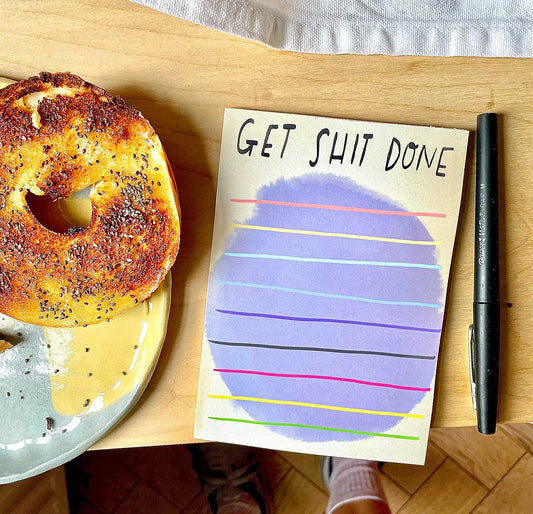 GET SHIT DONE